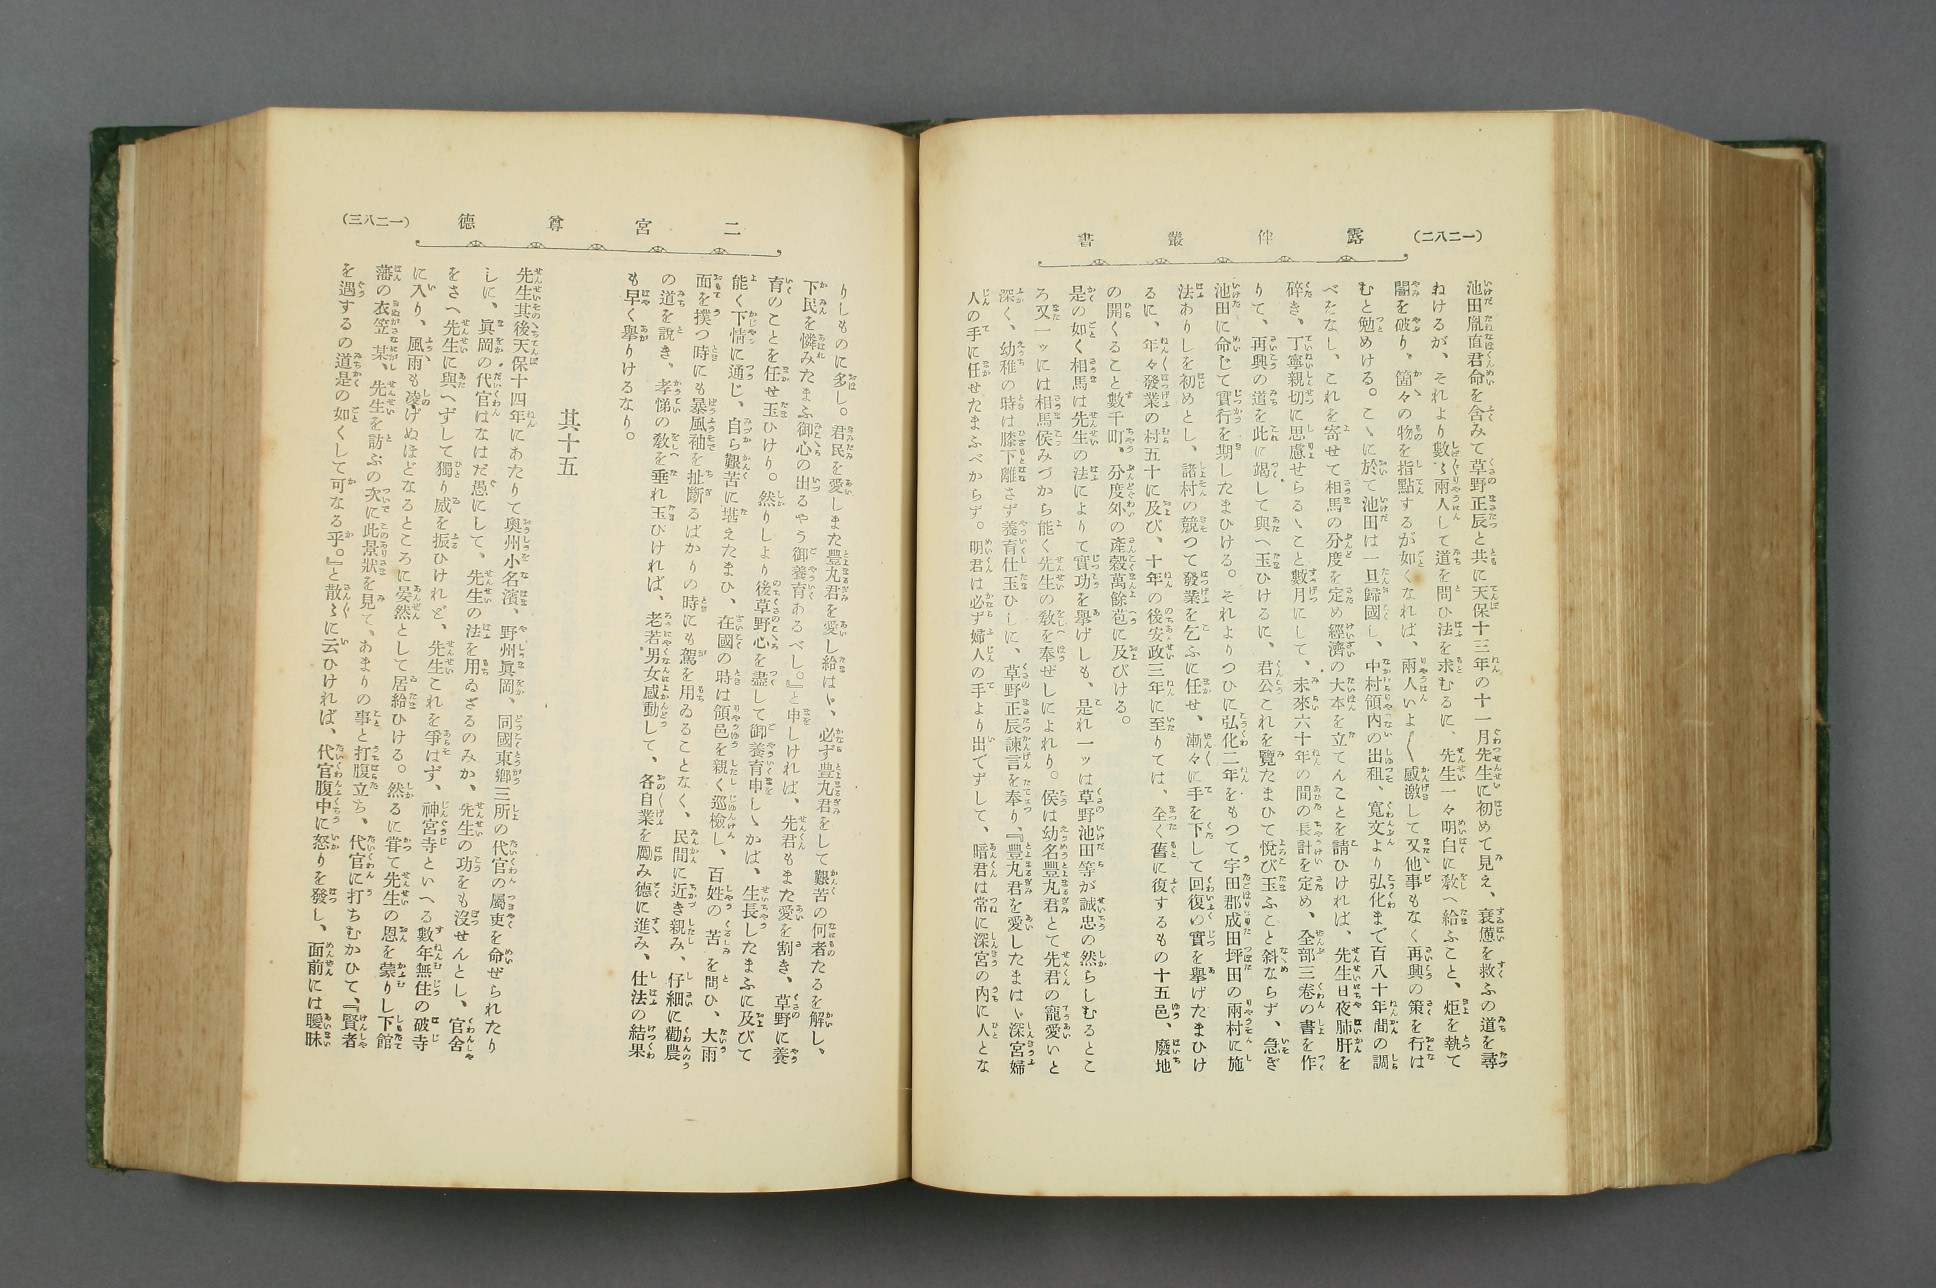 (一二八二) 露伴叢書
池田胤直君命を含みて草野正辰と共に天保十三年の十一月先生に初めて見え、衰憊を救ふの道を尋
ねけるが、それより數〻兩人して道を問ひ法を求むるに、先生一々明白に敎へ給ふこと、炬を執て
闇を破り、箇々の物を指點するが如くなれば、兩人いよ〱感激して又他事もなく再興の策を行は
むと勉めける。こゝに於て池田は一旦歸國し、中村領内の出租、寛文より弘化まで百八十年間の調
べをなし、これを寄せて相馬の分度を定め經濟の大本を立てんことを請ひければ、先生日夜肺肝を
碎き、丁寧親切に思慮せらるゝこと數月にして、未來六十年の間の長計を定め、全部三卷の書を作
りて、再興の道を此に竭して與へ玉ひけるに、君公これを覽たまひて悅び玉ふこと斜ならず、急ぎ
池田に命じて實行を期したまひける。それよりつひに弘化二年をもつて宇田郡成田坪田の兩村に施
法ありしを初めとし、諸村の競つて發業を乞ふに任せ、漸々に手を下して回復の實を擧げたまひけ
るに、年々發業の村五十に及び、十年の後安政三年に至りては、全く舊に復するもの十五邑、廢地
の開くること數千町、分度外の產穀萬餘苞に及びける。
是の如く相馬は先生の法によりて實功を擧げしも、是れ一ッは草野池田等が誠忠の然らしむるとこ
ろ又一ッには相馬侯みづから能く先生の敎を奉ぜしによれり。侯は幼名豐丸君とて先君の寵愛いと
深く、幼稚の時は膝下離さず養育仕玉ひしに、草野正辰諫言を奉り、『豐丸君を愛したまはゞ深宮婦
人の手に任せたまふべからず。明君は必ず婦人の手より出でずして、暗君は常に深宮の内に人とな
二宮尊德 (一二八三)
りしものに多し。君民を愛しまた豐丸君を愛し給はゞ、必ず豐丸君をして艱苦の何者たるを解し、
下民を憐みたまふ御心の出るやう御養育あるべし。』と申しければ、先君もまた愛を割き、草野に養
育のことを任せ玉ひけり。然りしより後草野心を盡して御養育申しゝかば、生長したまふに及びて
能く下情に通じ、自ら艱苦に堪えたまひ、在國の時は領邑を親く巡檢し、百姓の苦を問ひ、大雨
面を撲つ時にも暴風袖を扯斷るばかりの時にも駕を用ゐることなく、民間に近き親み、仔細に勸農
の道を說き、孝悌の敎を垂れ玉ひければ、老若男女感動して、各自業を勵み德に進み、仕法の結果
も早く擧りけるなり。
其十五
先生其後天保十四年にあたりて奧州小名濱、野州眞岡、同國東鄕三所の代官の屬吏を命ぜられたり
しに、眞岡の代官はなはだ愚にして、先生の法を用ゐざるのみか、先生の功をも沒せんとし、官舍
をさへ先生に與へずして獨り威を振ひけれど、先生これを爭はず、神宮寺といへる數年無住の破寺
に入り、風雨も凌げぬほどなるところに晏然として居給ひける。然るに甞て先生の恩を蒙りし下館
藩の衣笠某、先生を訪ぶの次に此景狀を見て、あまりの事と打腹立ち、代官に打ちむかひて、『賢者
を遇するの道是の如くして可なる乎。』と散〻に云ひければ、代官腹中に怒りを發し、面前には曖昧